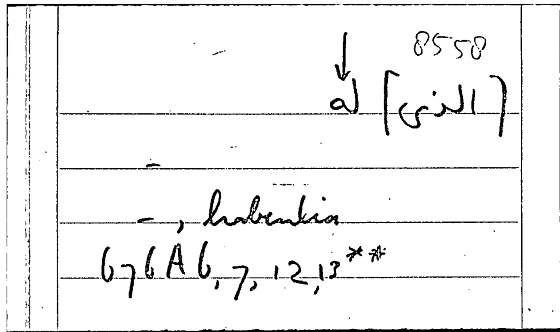 8558
↓
[الذى] له
-
-, habentia
676A6, 7, 12, 13**